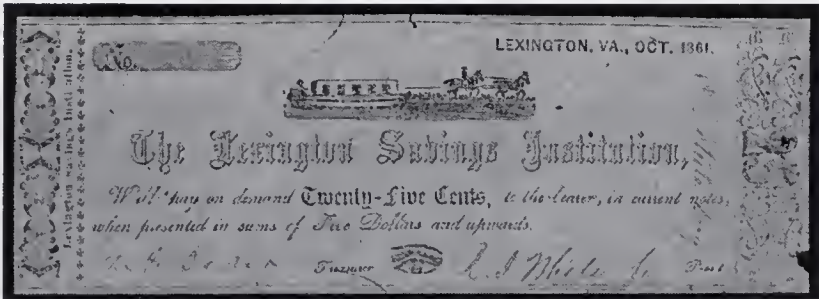 LEXINGTON, VA., OCT. 1861.
No.
Lexington Savings Institution.
The Lexington Savings Institution,
Will pay on demand Twenty-Five Cents, to the bearer, in current notes,
when presented in sums of Five Dollars and upwards.
Treasurer Prest